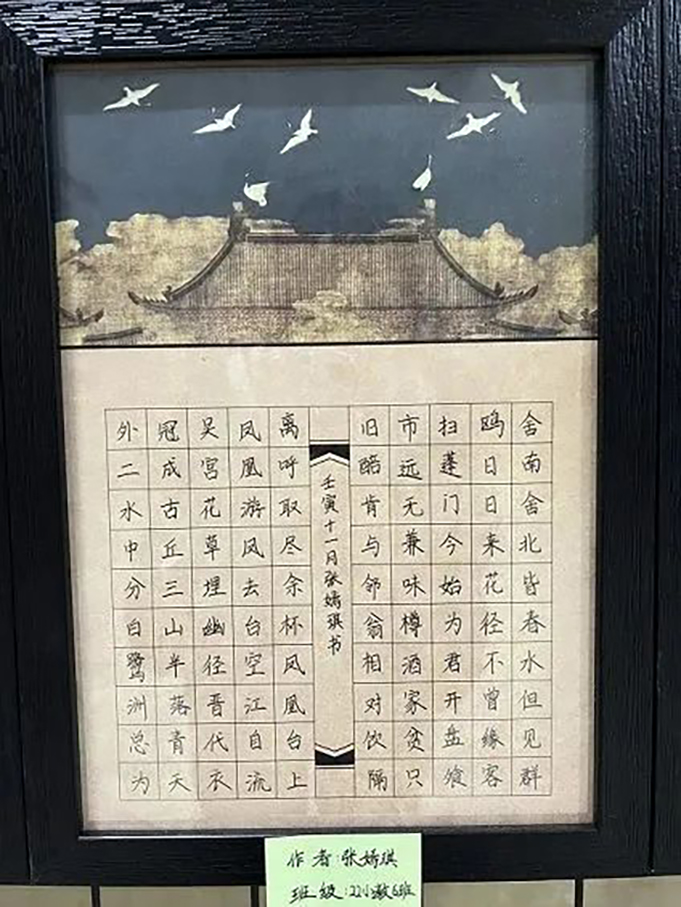 舍南舍北皆春水但见群
鸥日日来花径不曾缘客
扫蓬门今始为君开盘飧
市远无兼味樽酒家贫只
旧醅肯与邻翁相对饮隔
壬寅十一月张嫣琪书
离呼取尽余杯凤凰台上
凤凰游凤去台空江自流
吴宫花草埋幽径晋代衣
冠成古丘三山半落青天
外二水中分白鹭洲总为
作者:张嫣琪
班级:22小教6班